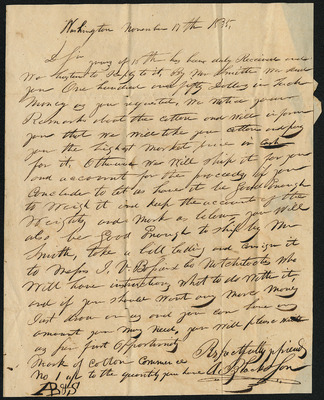 Washington November 17th 1835,
D Sir yours of 15th has been duly Received and
We hasten to Reply to it, by Mr Smith We send
you One hundred and fifty Dollars in
Money as you requested, We Notice your
Remarks about the cotton and Will inform
you that we will take your cotton and pay
you the highest Market price in Cash
for it, Otherwise We Will Ship it for you
and account for the proceeds if you
Conclude to let us have it be Good Enough
to Weigh it and keep the account of the
Weights and Mark as below, you Will
also be Good Enough to ship by Mr
Smith, take a bill lading and Consign it
to Messrs to Natchitoches Who
Will have instructions What to do With it
and if you should Want any More Money
Just draw on us and you can have any
amount you May Need, you will please
us per first Opportunity
Mark of Cotton Commence Respectfully yr friends
No 1 up to the quantity you have & Son
B & S